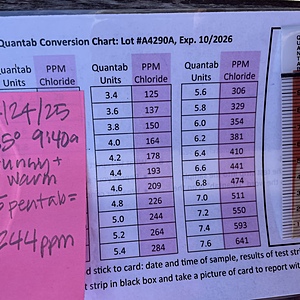 Quantab Conversion Chart: Lot #A4290A, Exp. 10/2026
Quantab Units PPM Chloride Quantab Units PPM Chloride Quantab Units PPM Chloride
3.4 125 5.6 306
3.6 137 5.8 329
3.8 150 6.0 354
4.0 164 6.2 381
4.2 178 6.4 410
4.4 193 6.6 441
4.6 209 6.8 474
4.8 226 7.0 511
5.0 244 7.2 550
5.2 264 7.4 593
5.4 284 7.6 641
/24/25
5° 9:40a
sunny +
warm
pentab=
244 ppm
d stick to card: date and time of sample, results of test
strip in black box and take a picture of card to report